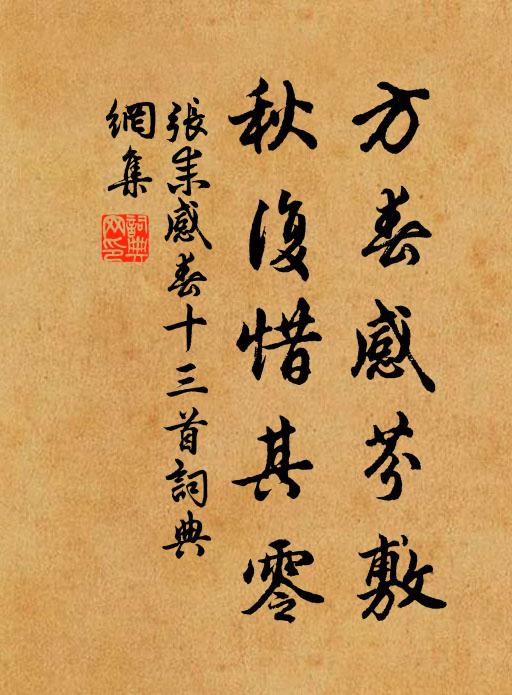 方春感芬敷
秋復惜其零
張耒感春十三首詞典
網集
詞典
网印